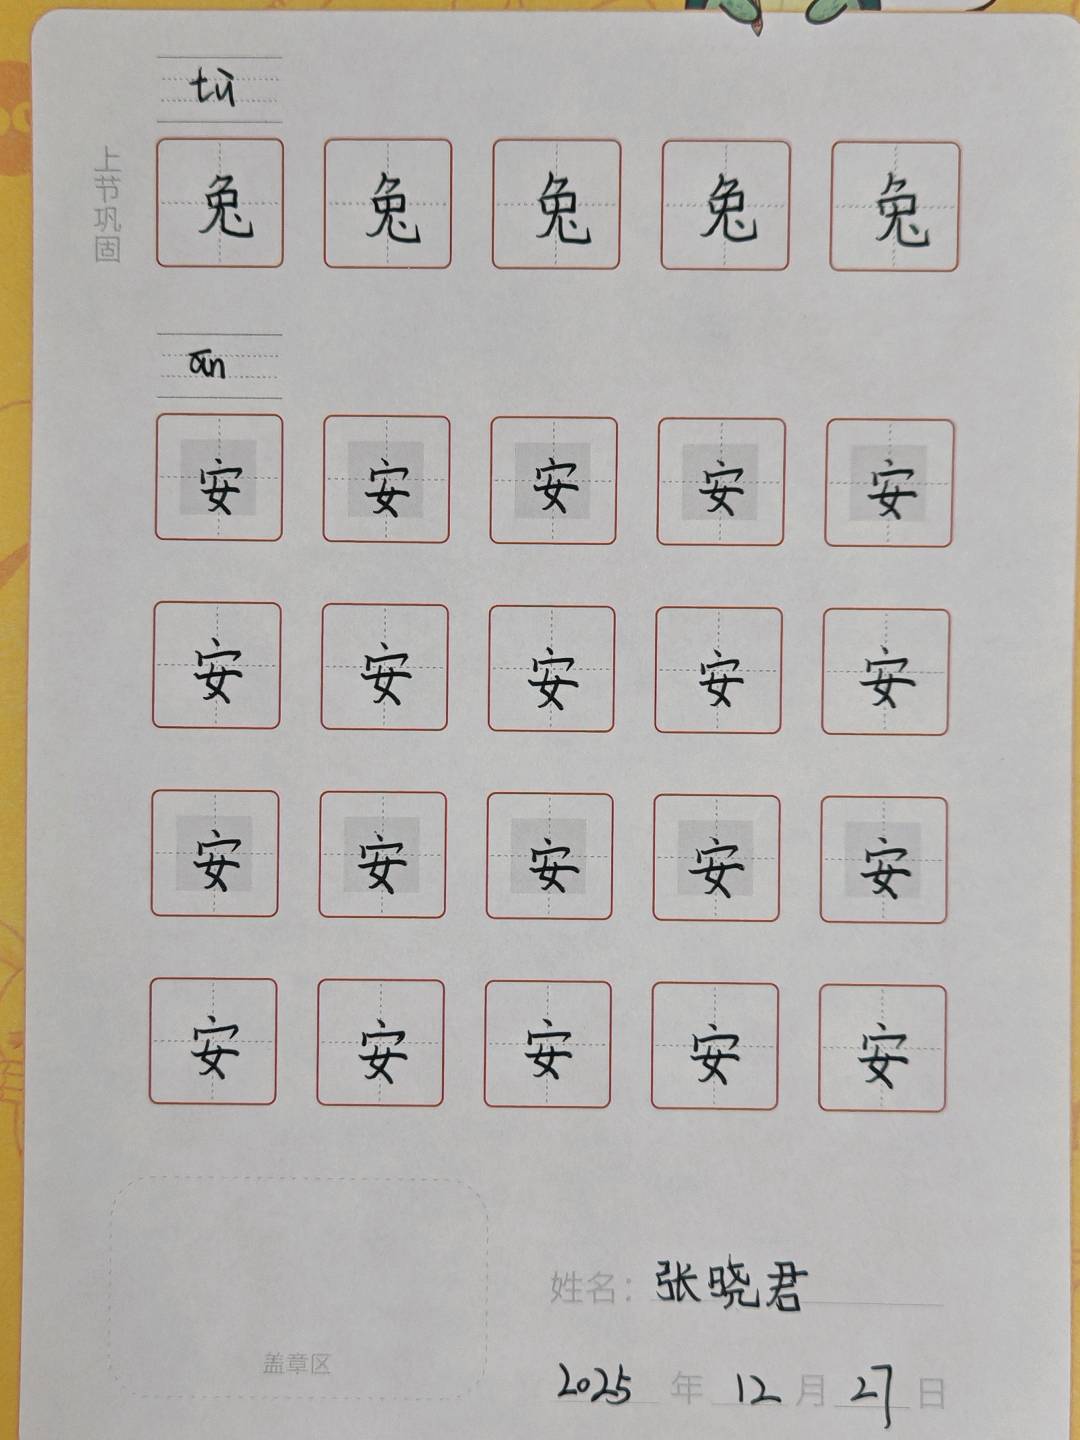 tù
上节巩固
兔 兔 兔 兔 兔
ān
安 安 安 安 安
安 安 安 安 安
安 安 安 安 安
安 安 安 安 安
姓名：张晓君
盖章区
2025 年 12 月 27 日